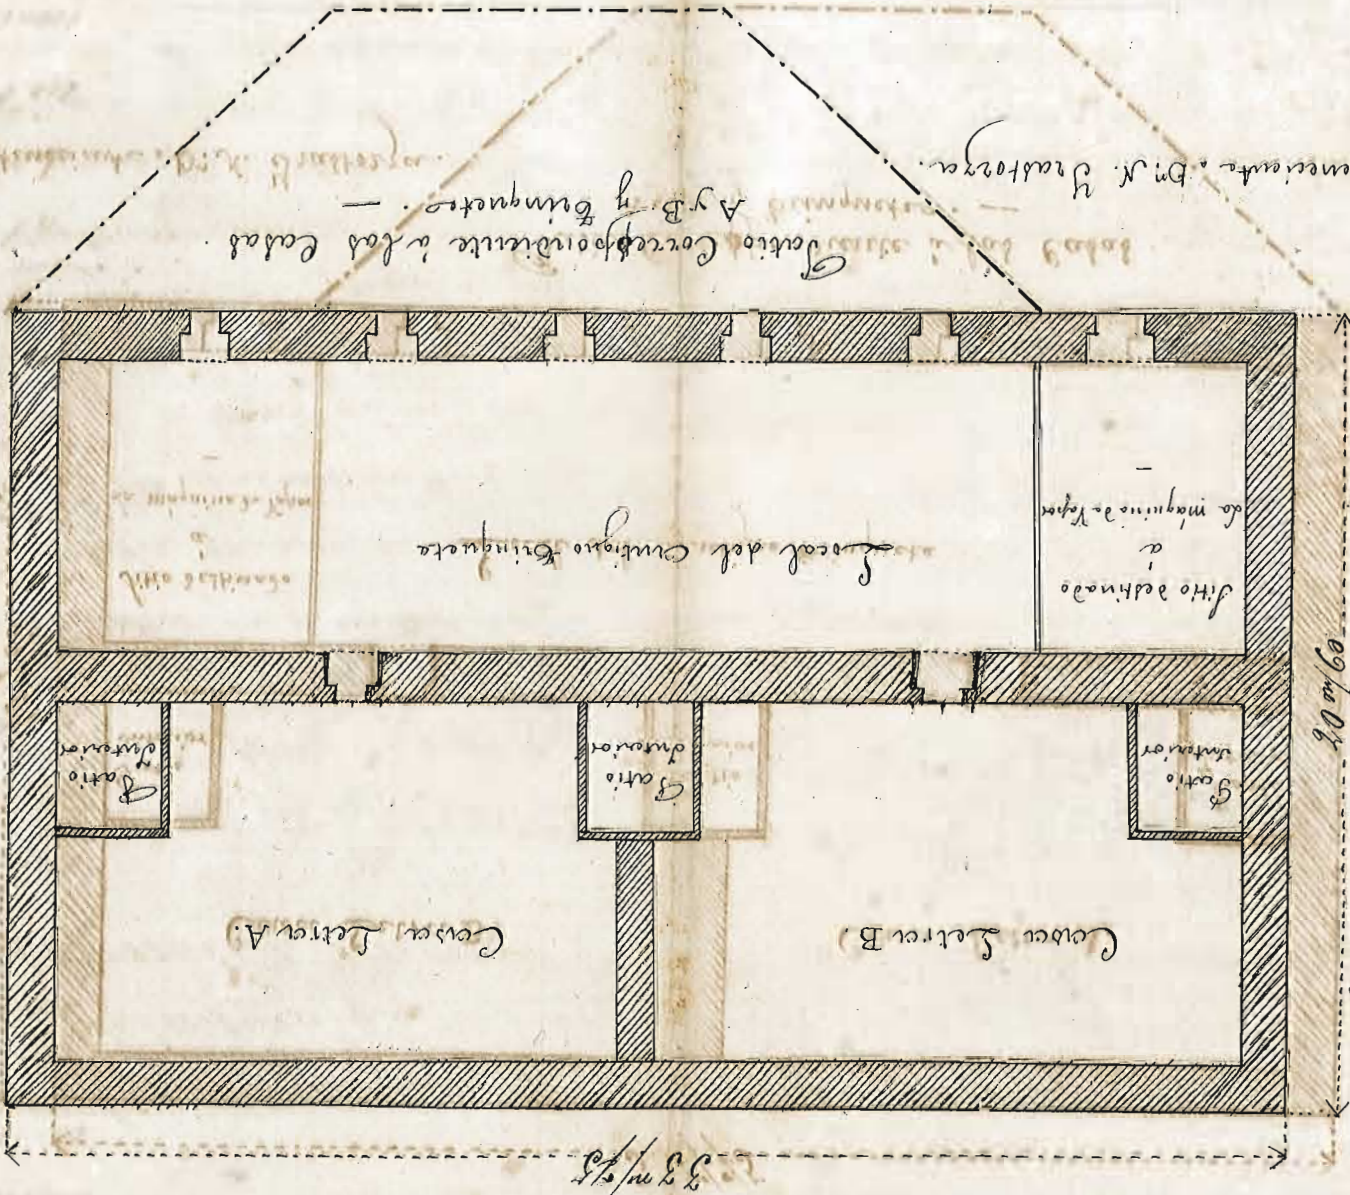 33 m/75
Casa Letra B.
Casa Letra A.
Patio
Interior
Patio
Interior
Patio
Interior
Sitio destinado
à
la máquina de Vapor
Local del Antiguo Trinquete
Patio Correspondiente à las Casas
A y B. y Trinquete. —
Dn. N. Irastorza.